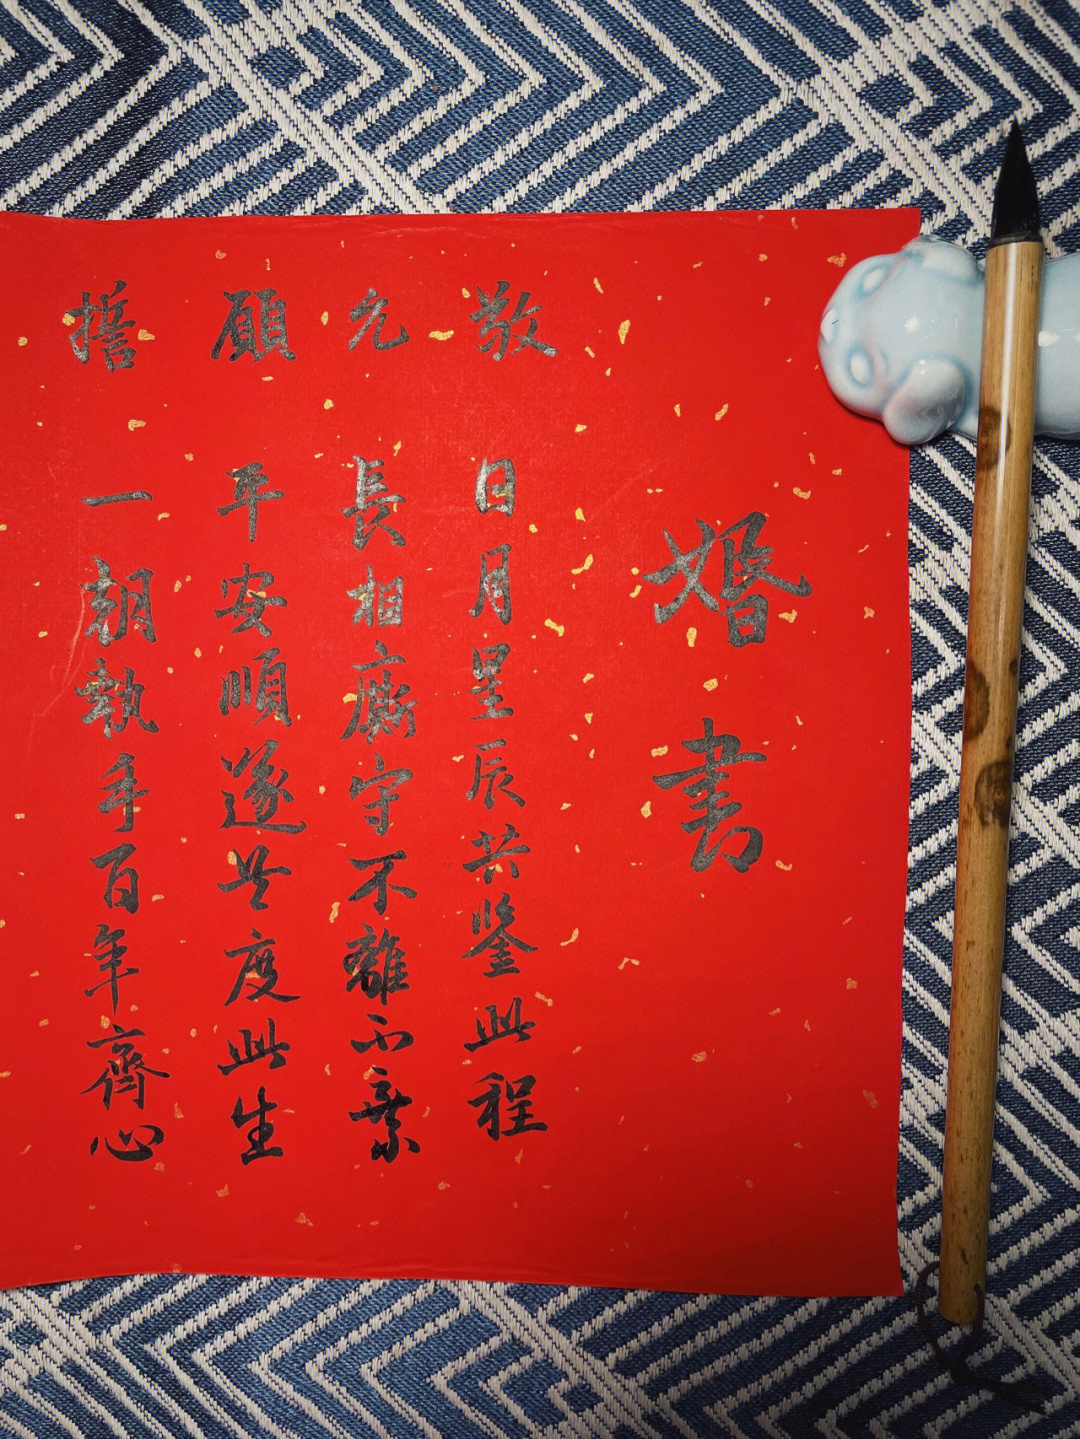 婚書
敬 日月星辰共鑒此程
允 長相廝守不離不棄
願 平安順遂共度此生
誓 一朝執手百年齊心